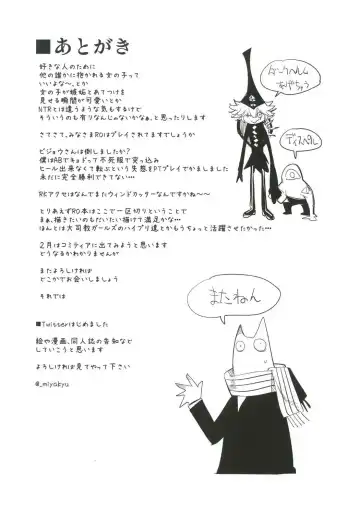 ■あとがき
好きな人のために
他の誰かに抱かれる女の子って
いいよな〜、とか
女の子が嫉妬とあてつけを
見せる瞬間が可愛いとか
NTRとは違うような気もするけど
そういうのも有りなんじゃないかなぁ、と思ったりします
さてさて、みなさまROはプレイされてますでしょうか
ビジョウさんは倒しましたか?
僕はABでキョドって不死服で突っ込み
ヒール出来なくて転ぶという失態をPTプレイでかましました
未だに完全勝利できてない…
RKアクセはなんでまたウィンドカッターなんですかね〜〜
とりあえずRO本はここで一区切りということで
まぁ、描きたいものもだいたい描けて満足かな…
ほんとは大司教ガールズのハイプリ達とかもうちょっと活躍させたかった…
2月はコミティアに出てみようと思います
どうなるかわかりませんが
またよろしければ
どこかでお会いしましょう
それでは
■Twitterはじめました
絵や漫画、同人誌の告知など
していこうと思います
よろしければ見てやって下さい
@_miyakyu
ダークヘルム
あげちゃう
ディスペル
またねん